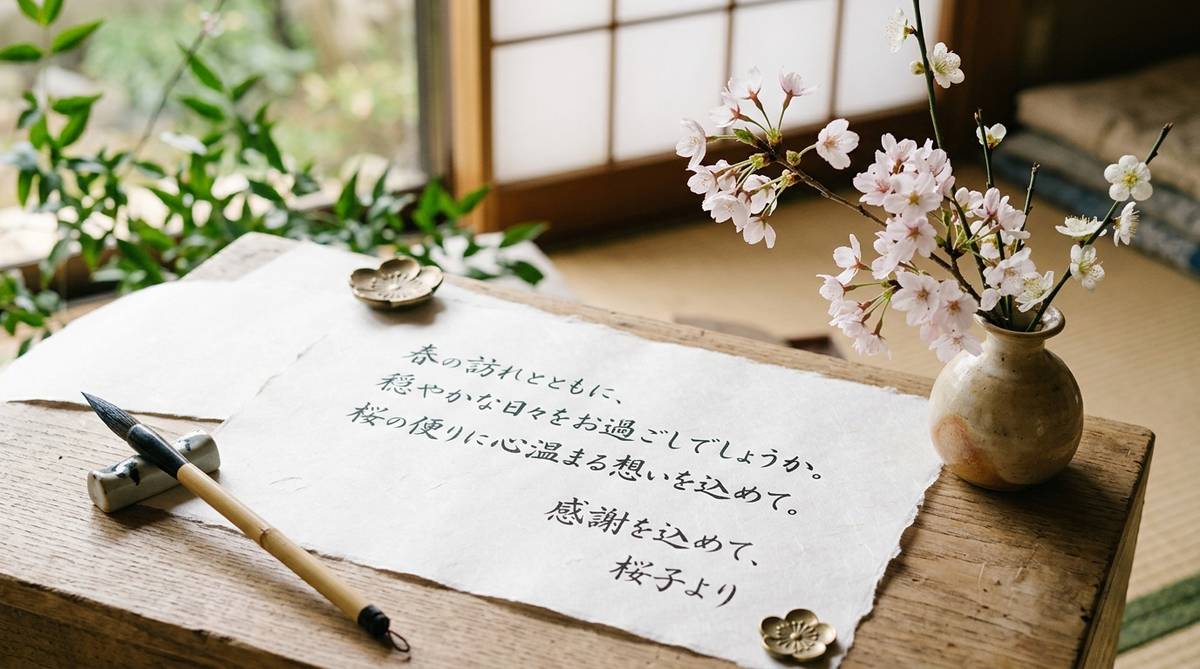 春の訪れとともに、
穏やかな日々をお過ごしでしょうか。
桜の便りに心温まる想いを込めて。
感謝を込めて、
桜子より